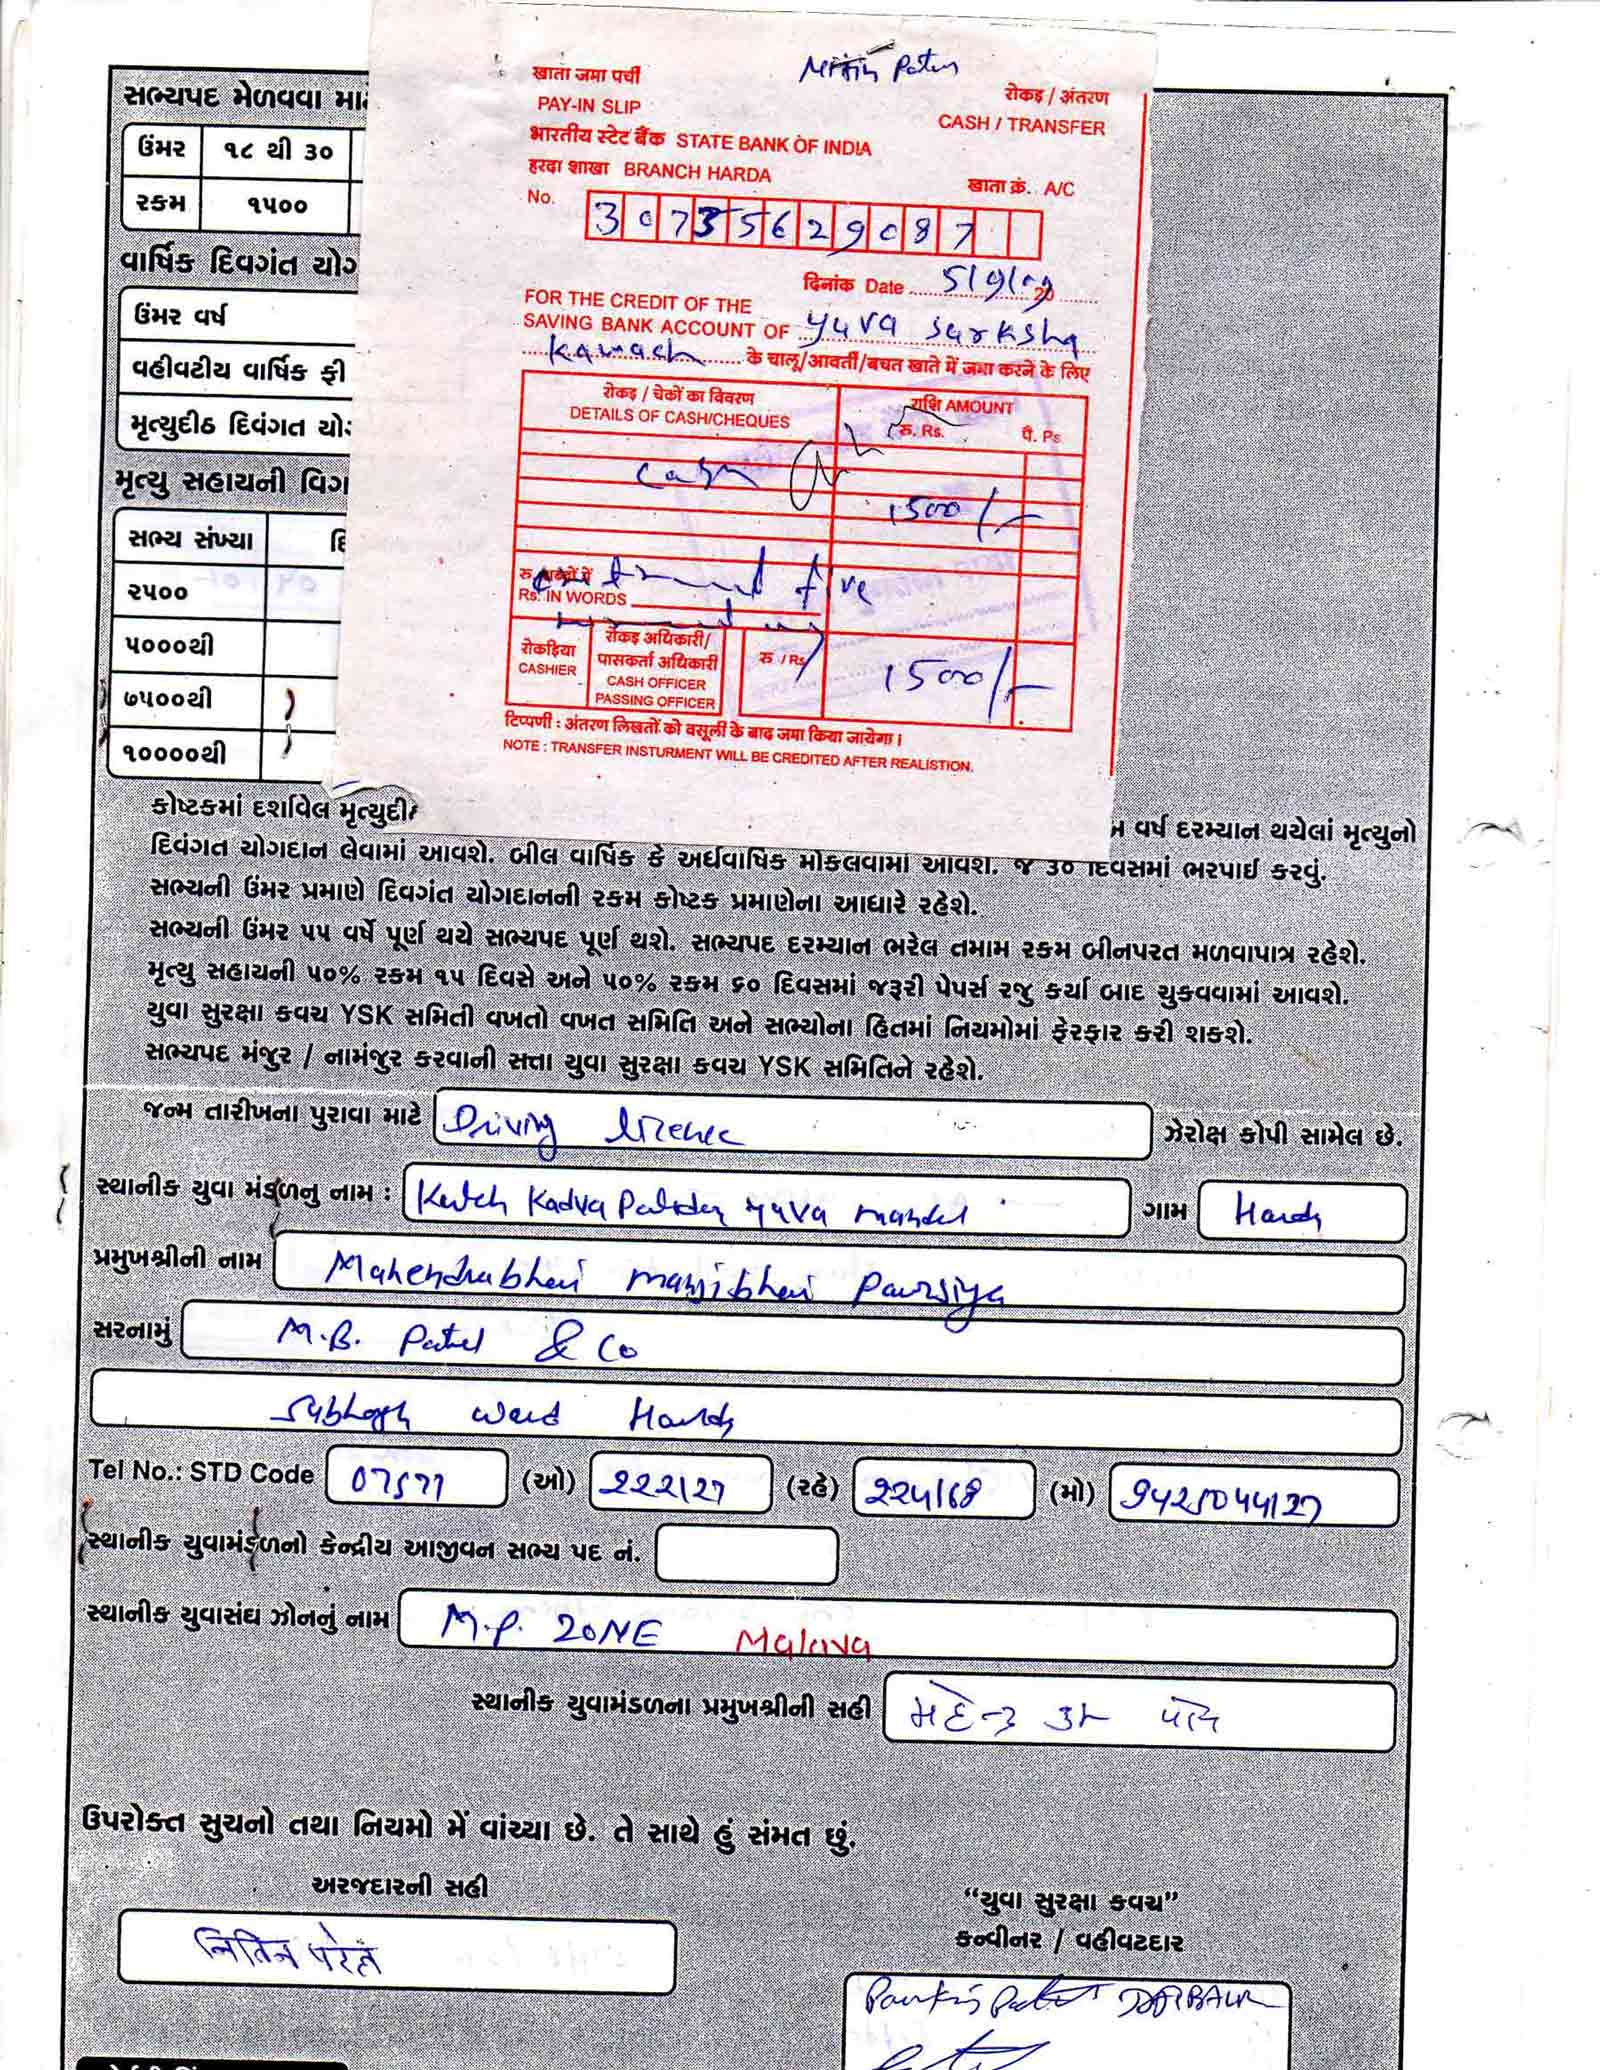 Nitin Patel
खाता जमा पर्ची
रोकड़ / अंतरण
PAY-IN SLIP
CASH / TRANSFER
भारतीय स्टेट बैंक STATE BANK OF INDIA
हरदा शाखा BRANCH HARDA
खाता क्रं. A/C
No. 30735629087
दिनांक Date 5/9/09
FOR THE CREDIT OF THE
SAVING BANK ACCOUNT OF yuva surksha
kavach के चालू/आवर्ती/बचत खाते में जमा करने के लिए
रोकड़ / चेकों का विवरण राशि AMOUNT
DETAILS OF CASH/CHEQUES रु. Rs. पै. Ps.
cash 1500/-
रु. शब्दों में
Rs. IN WORDS five
रोकड़िया रोकड़ अधिकारी/ रु / Rs 1500/-
CASHIER पासकर्ता अधिकारी
CASH OFFICER
PASSING OFFICER
टिप्पणी : अंतरण लिखतों को वसूली के बाद जमा किया जायेगा।
NOTE : TRANSFER INSTURMENT WILL BE CREDITED AFTER REALISTION.
સભ્યપદ મેળવવા
ઉંમર ૧૮ થી ૩૦
રકમ ૧૫૦૦
વાર્ષિક દિવગંત
ઉંમર વર્ષ
વહીવટીય વાર્ષિક ફી
મૃત્યુદીઠ દિવંગત
મૃત્યુ સહાયની
સભ્ય સંખ્યા
૨૫૦૦
૫૦૦૦થી
૭૫૦૦થી
૧૦૦૦૦થી
કોષ્ટકમાં દર્શાવેલ વર્ષ દરમ્યાન થયેલાં મૃત્યુનો
દિવંગત યોગદાન લેવામાં આવશે. બીલ વાર્ષિક કે અર્ધવાર્ષિક મોકલવામાં આવશે. જે ૩૦ દિવસમાં ભરપાઈ કરવું.
સભ્યની ઉંમર પ્રમાણે દિવગંત યોગદાનની રકમ કોષ્ટક પ્રમાણેના આધારે રહેશે.
સભ્યની ઉંમર ૫૫ વર્ષે પૂર્ણ થયે સભ્યપદ પૂર્ણ થશે. સભ્યપદ દરમ્યાન ભરેલ તમામ રકમ બીનપરત મળવાપાત્ર રહેશે.
મૃત્યુ સહાયની ૫૦% રકમ ૧૫ દિવસે અને ૫૦% રકમ ૬૦ દિવસમાં જરૂરી પેપર્સ રજુ કર્યા બાદ ચુકવવામાં આવશે.
યુવા સુરક્ષા કવચ YSK સમિતી વખતો વખત સમિતિ અને સભ્યોના હિતમાં નિયમોમાં ફેરફાર કરી શકશે.
સભ્યપદ મંજુર / નામંજુર કરવાની સત્તા યુવા સુરક્ષા કવચ YSK સમિતિને રહેશે.
જન્મ તારીખના પુરાવા માટે Driving licence ઝેરોક્ષ કોપી સામેલ છે.
સ્થાનીક યુવા મંડળનુ નામ : Kutch Kadva Patidar yuva mandal ગામ Harda
પ્રમુખશ્રીની નામ Mahendrabhai manjibhai
સરનામું M.B. Patel & Co
ward Harda
Tel No.: STD Code 07577 (ઓ) 222127 (રહે) 224168 (મો) 9425044127
સ્થાનીક યુવામંડળનો કેન્દ્રીય આજીવન સભ્ય પદ નં.
સ્થાનીક યુવાસંઘ ઝોનનું નામ M.P. ZONE Malava
સ્થાનીક યુવામંડળના પ્રમુખશ્રીની સહી
ઉપરોક્ત સુચનો તથા નિયમો મેં વાંચ્યા છે. તે સાથે હું સંમત છું.
અરજદારની સહી
“યુવા સુરક્ષા કવચ”
કન્વીનર / વહીવટદાર
નિતિન પટેલ